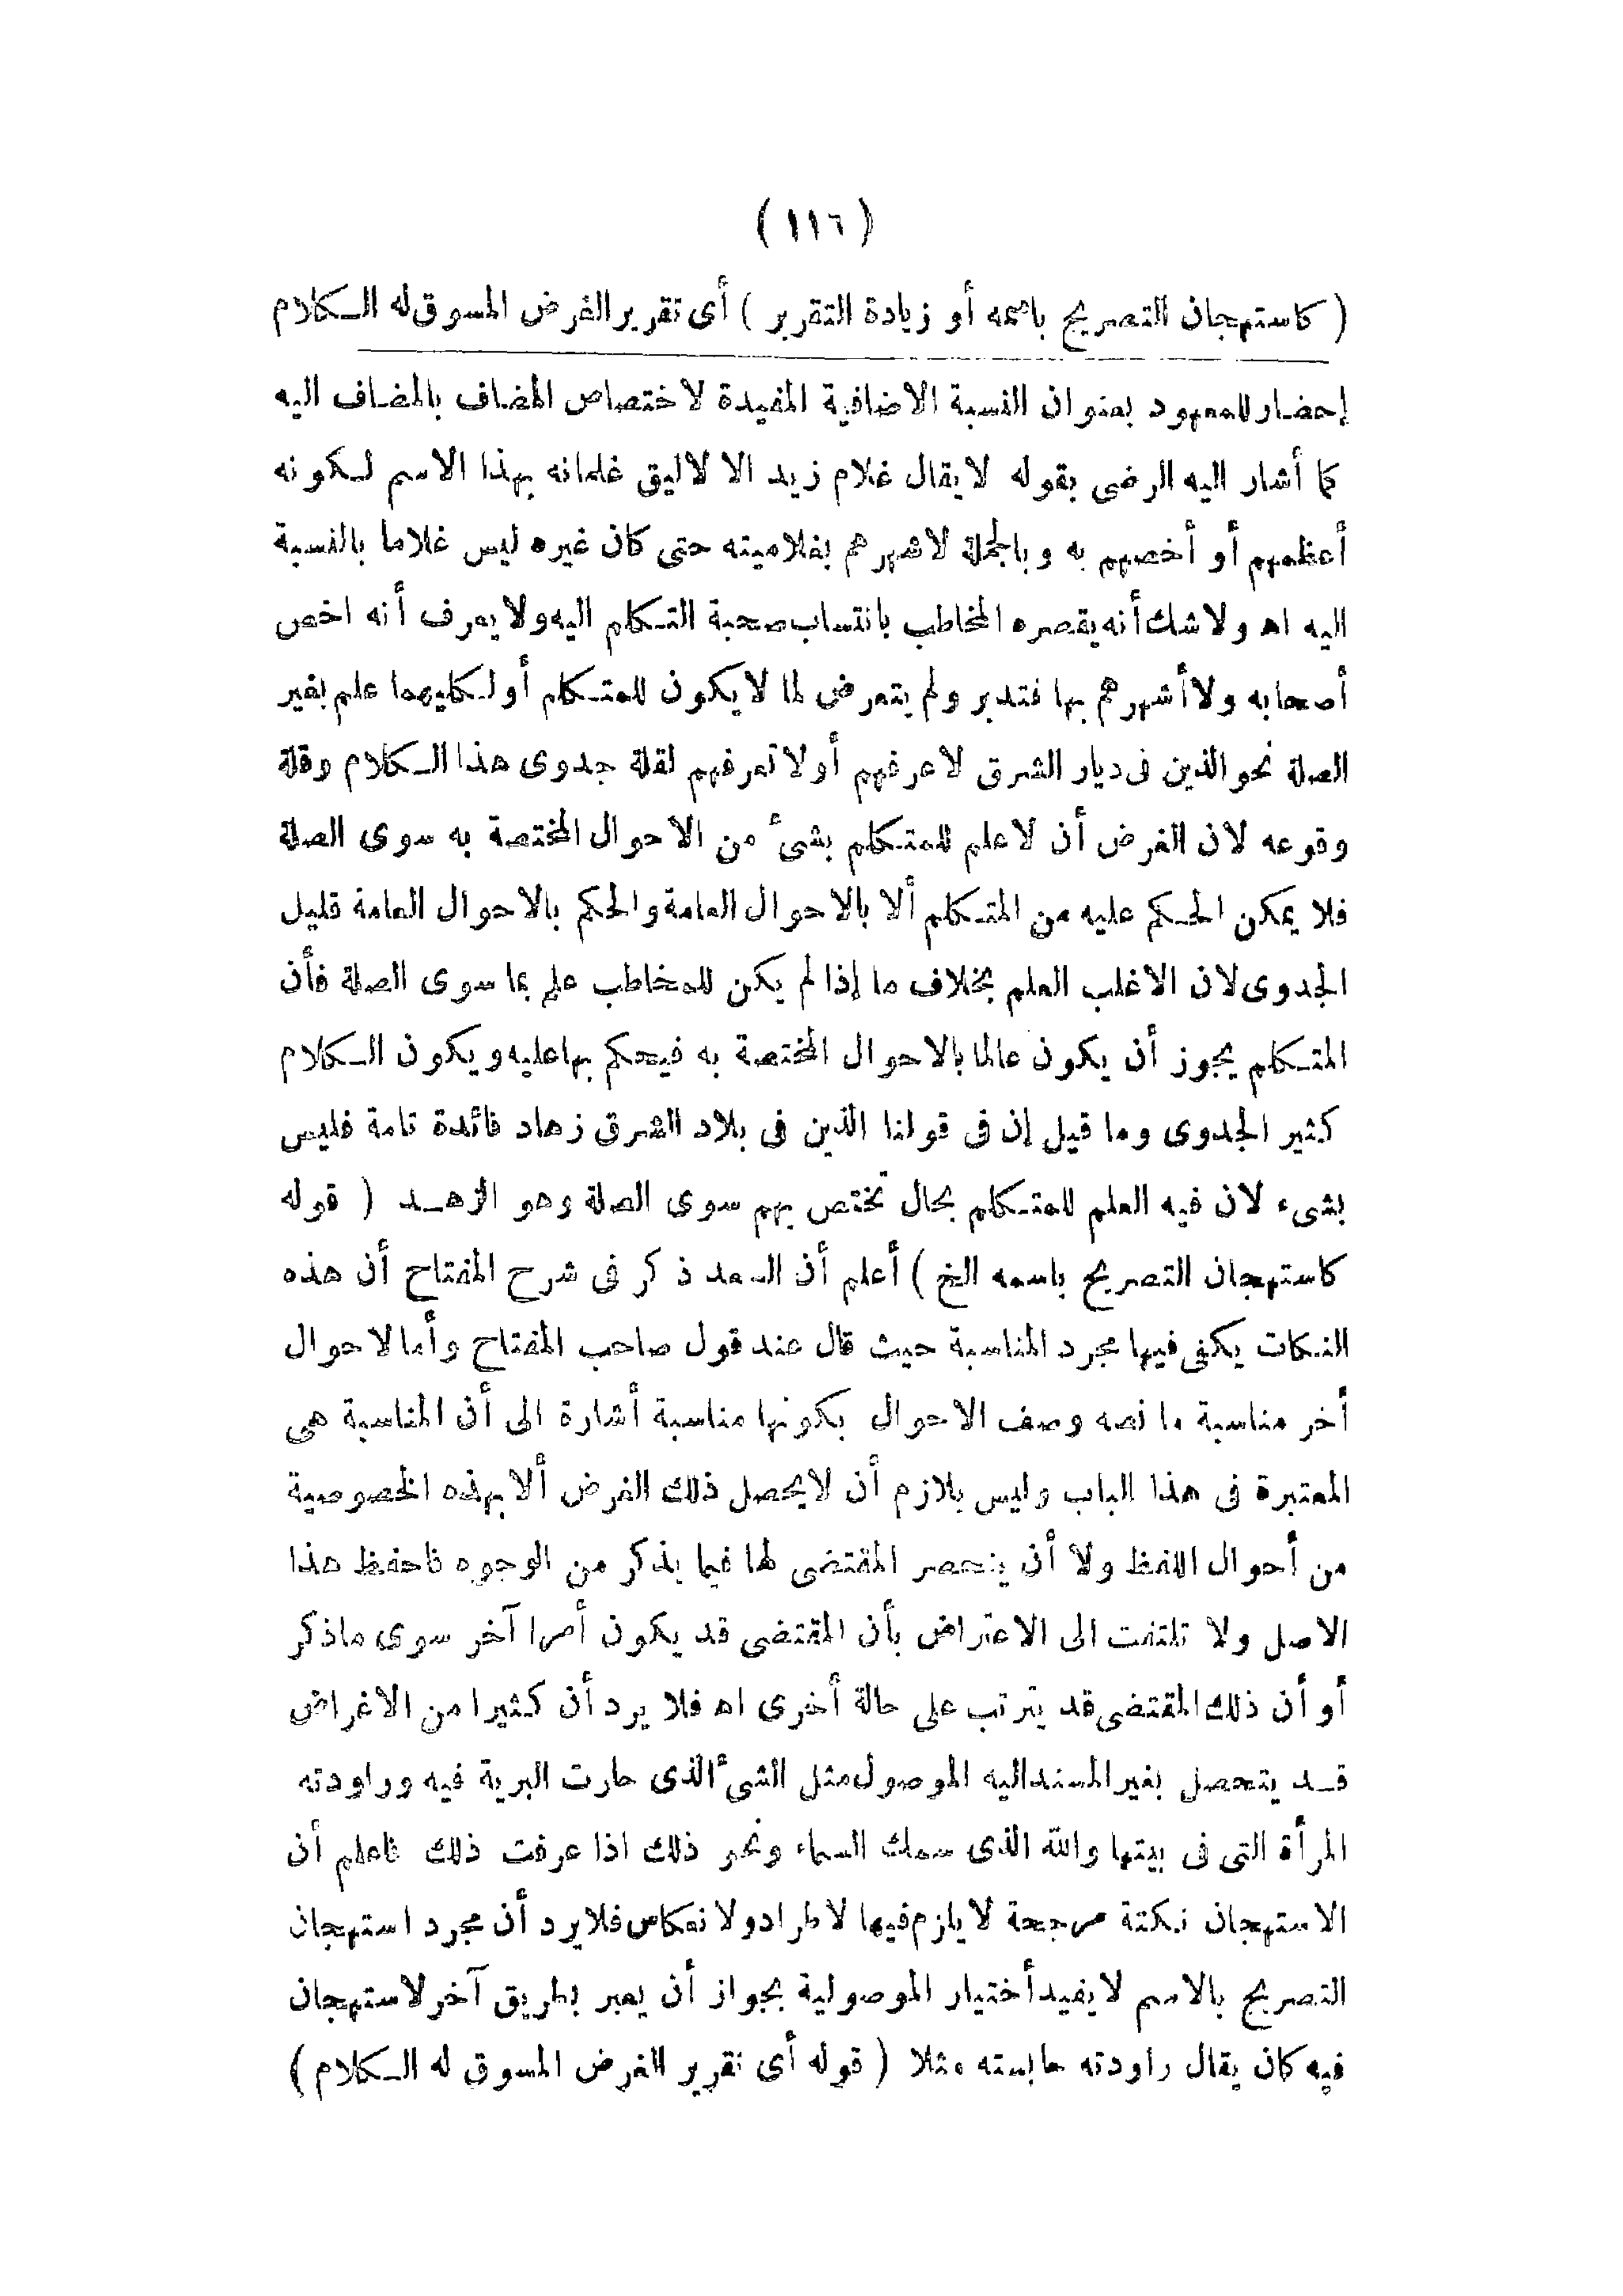 ( ١١٦ )
( كاستهجان التصريح باسمه أو زيادة التقرير ) أى تقرير الغرض المسوق له الـكلام
إحضار للمعهود بعنوان النسبة الاضافية المفيدة لاختصاص المضاف بالمضاف اليه
كما أشار اليه الرضى بقوله لايقال غلام زيد الا لاليق غلمانه بهذا الاسم لـكونه
أعظمهم أو أخصهم به وبالجملة لاشهرهم بغلاميته حتى كان غيره ليس غلاما بالنسبة
اليه اه ولاشك أنه يقصره المخاطب بانتساب صحبة التـكلم اليه ولا يعرف أنه اخص
أصحابه ولا أشهرهم بها فتدبر ولم يتعرض لما لا يكون للمتـكلم أو لـكليهما علم بغير
الصلة نحو الذين فى ديار الشرق لاعرفهم أولا تعرفهم لقلة جدوى هذا الـكلام وقلة
وقوعه لان الغرض أن لاعلم للمتـكلم بشئ من الاحوال المختصة به سوى الصلة
فلا يمكن الحـكم عليه من المتـكلم ألا بالاحوال العامة والحكم بالاحوال العامة قليل
الجدوى لان الاغلب العلم بخلاف ما إذا لم يكن للمخاطب علم بما سوى الصلة فأن
المتـكلم يجوز أن يكون عالما بالاحوال المختصة به فيحكم بها عليه ويكون الـكلام
كثير الجدوى وما قيل إن فى قولنا الذين فى بلاد الشرق زهاد فائدة تامة فليس
بشىء لان فيه العلم للمتـكلم بحال تختص بهم سوى الصلة وهو الزهـد ( قوله
كاستهجان التصريح باسمه الخ ) أعلم أن السعد ذكر فى شرح المفتاح أن هذه
النـكات يكفى فيها مجرد المناسبة حيث قال عند قول صاحب المفتاح وأما لاحوال
أخر مناسبة ما نصه وصف الاحوال بكونها مناسبة أشارة الى أن المناسبة هى
المعتبرة فى هذا الباب وليس بلازم أن لايحصل ذلك الغرض ألا بهذه الخصوصية
من أحوال اللفظ ولا أن ينحصر المقتضى لها فيما يذكر من الوجوه فاحفظ هذا
الاصل ولا تلتفت الى الاعتراض بأن المقتضى قد يكون أمرا آخر سوى ماذكر
أو أن ذلك المقتضى قد يترتب على حالة أخرى اه فلا يرد أن كثيرا من الاغراض
قـد يتحصل بغير المسند اليه الموصول مثل الشئ الذى حارت البرية فيه وراودته
المرأة التى فى بيتها والله الذى سمك السماء ونحو ذلك اذا عرفت ذلك فاعلم أن
الاستهجان نـكتة مرجحة لا يلزم فيها لاطراد ولا نعكاس فلا يرد أن مجرد استهجان
التصريح بالاسم لا يفيد أختيار الموصولية بجواز أن يعبر بطريق آخر لاستهجان
فيه كان يقال راودته مثلا ( قوله أى تقرير الغرض المسوق له الـكلام )